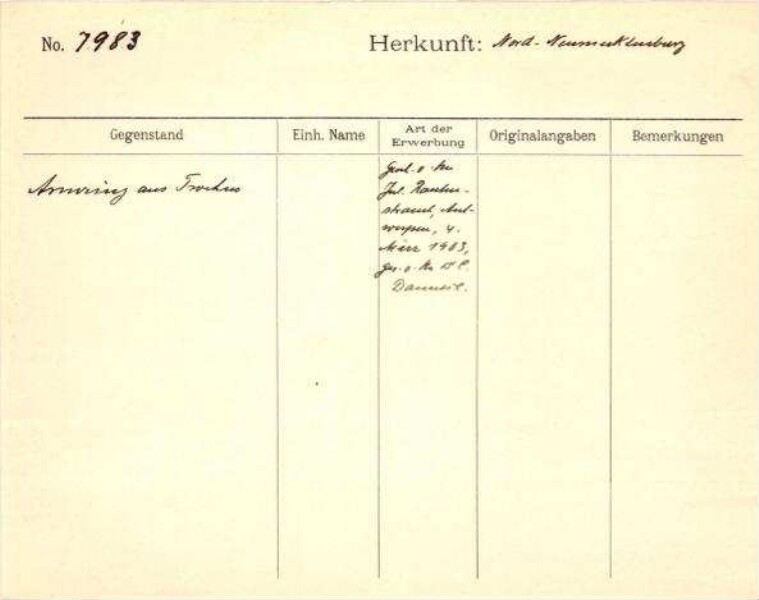 No. 7983 Herkunft: Nord-Neumecklenburg
Gegenstand Einh. Name Art der Erwerbung Originalangaben Bemerkungen
Armring aus Trochus
Jul. Rauten-
strauch, Ant-
werpen, 4.
März 1903,
ges. v. Hn Dr C.
Danneil.